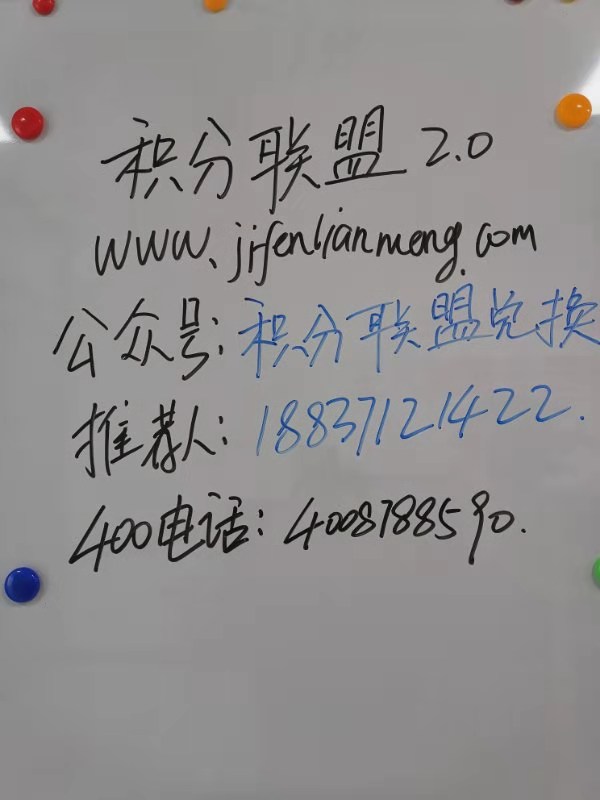 积分联盟2.0
www.jifenlianmeng.com
公众号:积分联盟兑换
推荐人:18837121422.
400电话:4008788590.